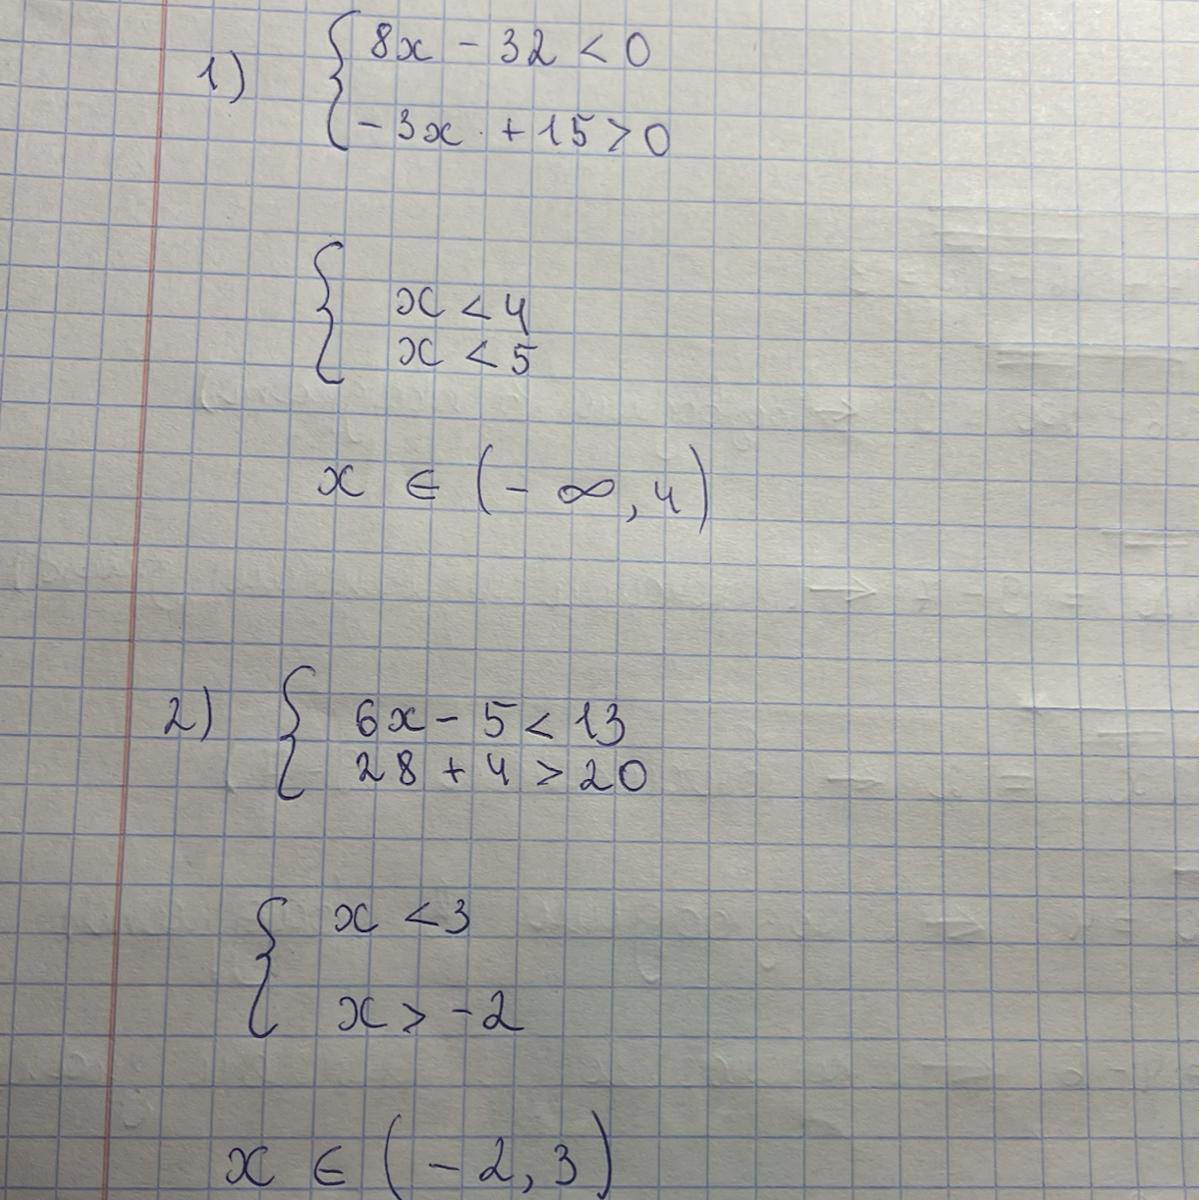 1) { 8x - 32 < 0
- 3x + 15 > 0
{ x < 4
x < 5
x ∈ (- ∞, 4)
2) { 6x - 5 < 13
28 + 4 > 20
{ x < 3
x > -2
x ∈ (-2, 3)